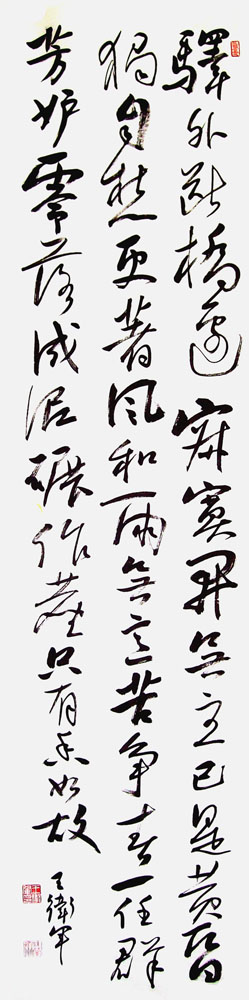 驛外斷橋邊寂寞開無主已是黃昏
獨自愁更著風和雨無意苦爭春一任群
芳妒零落成泥碾作塵只有香如故
王衛軍